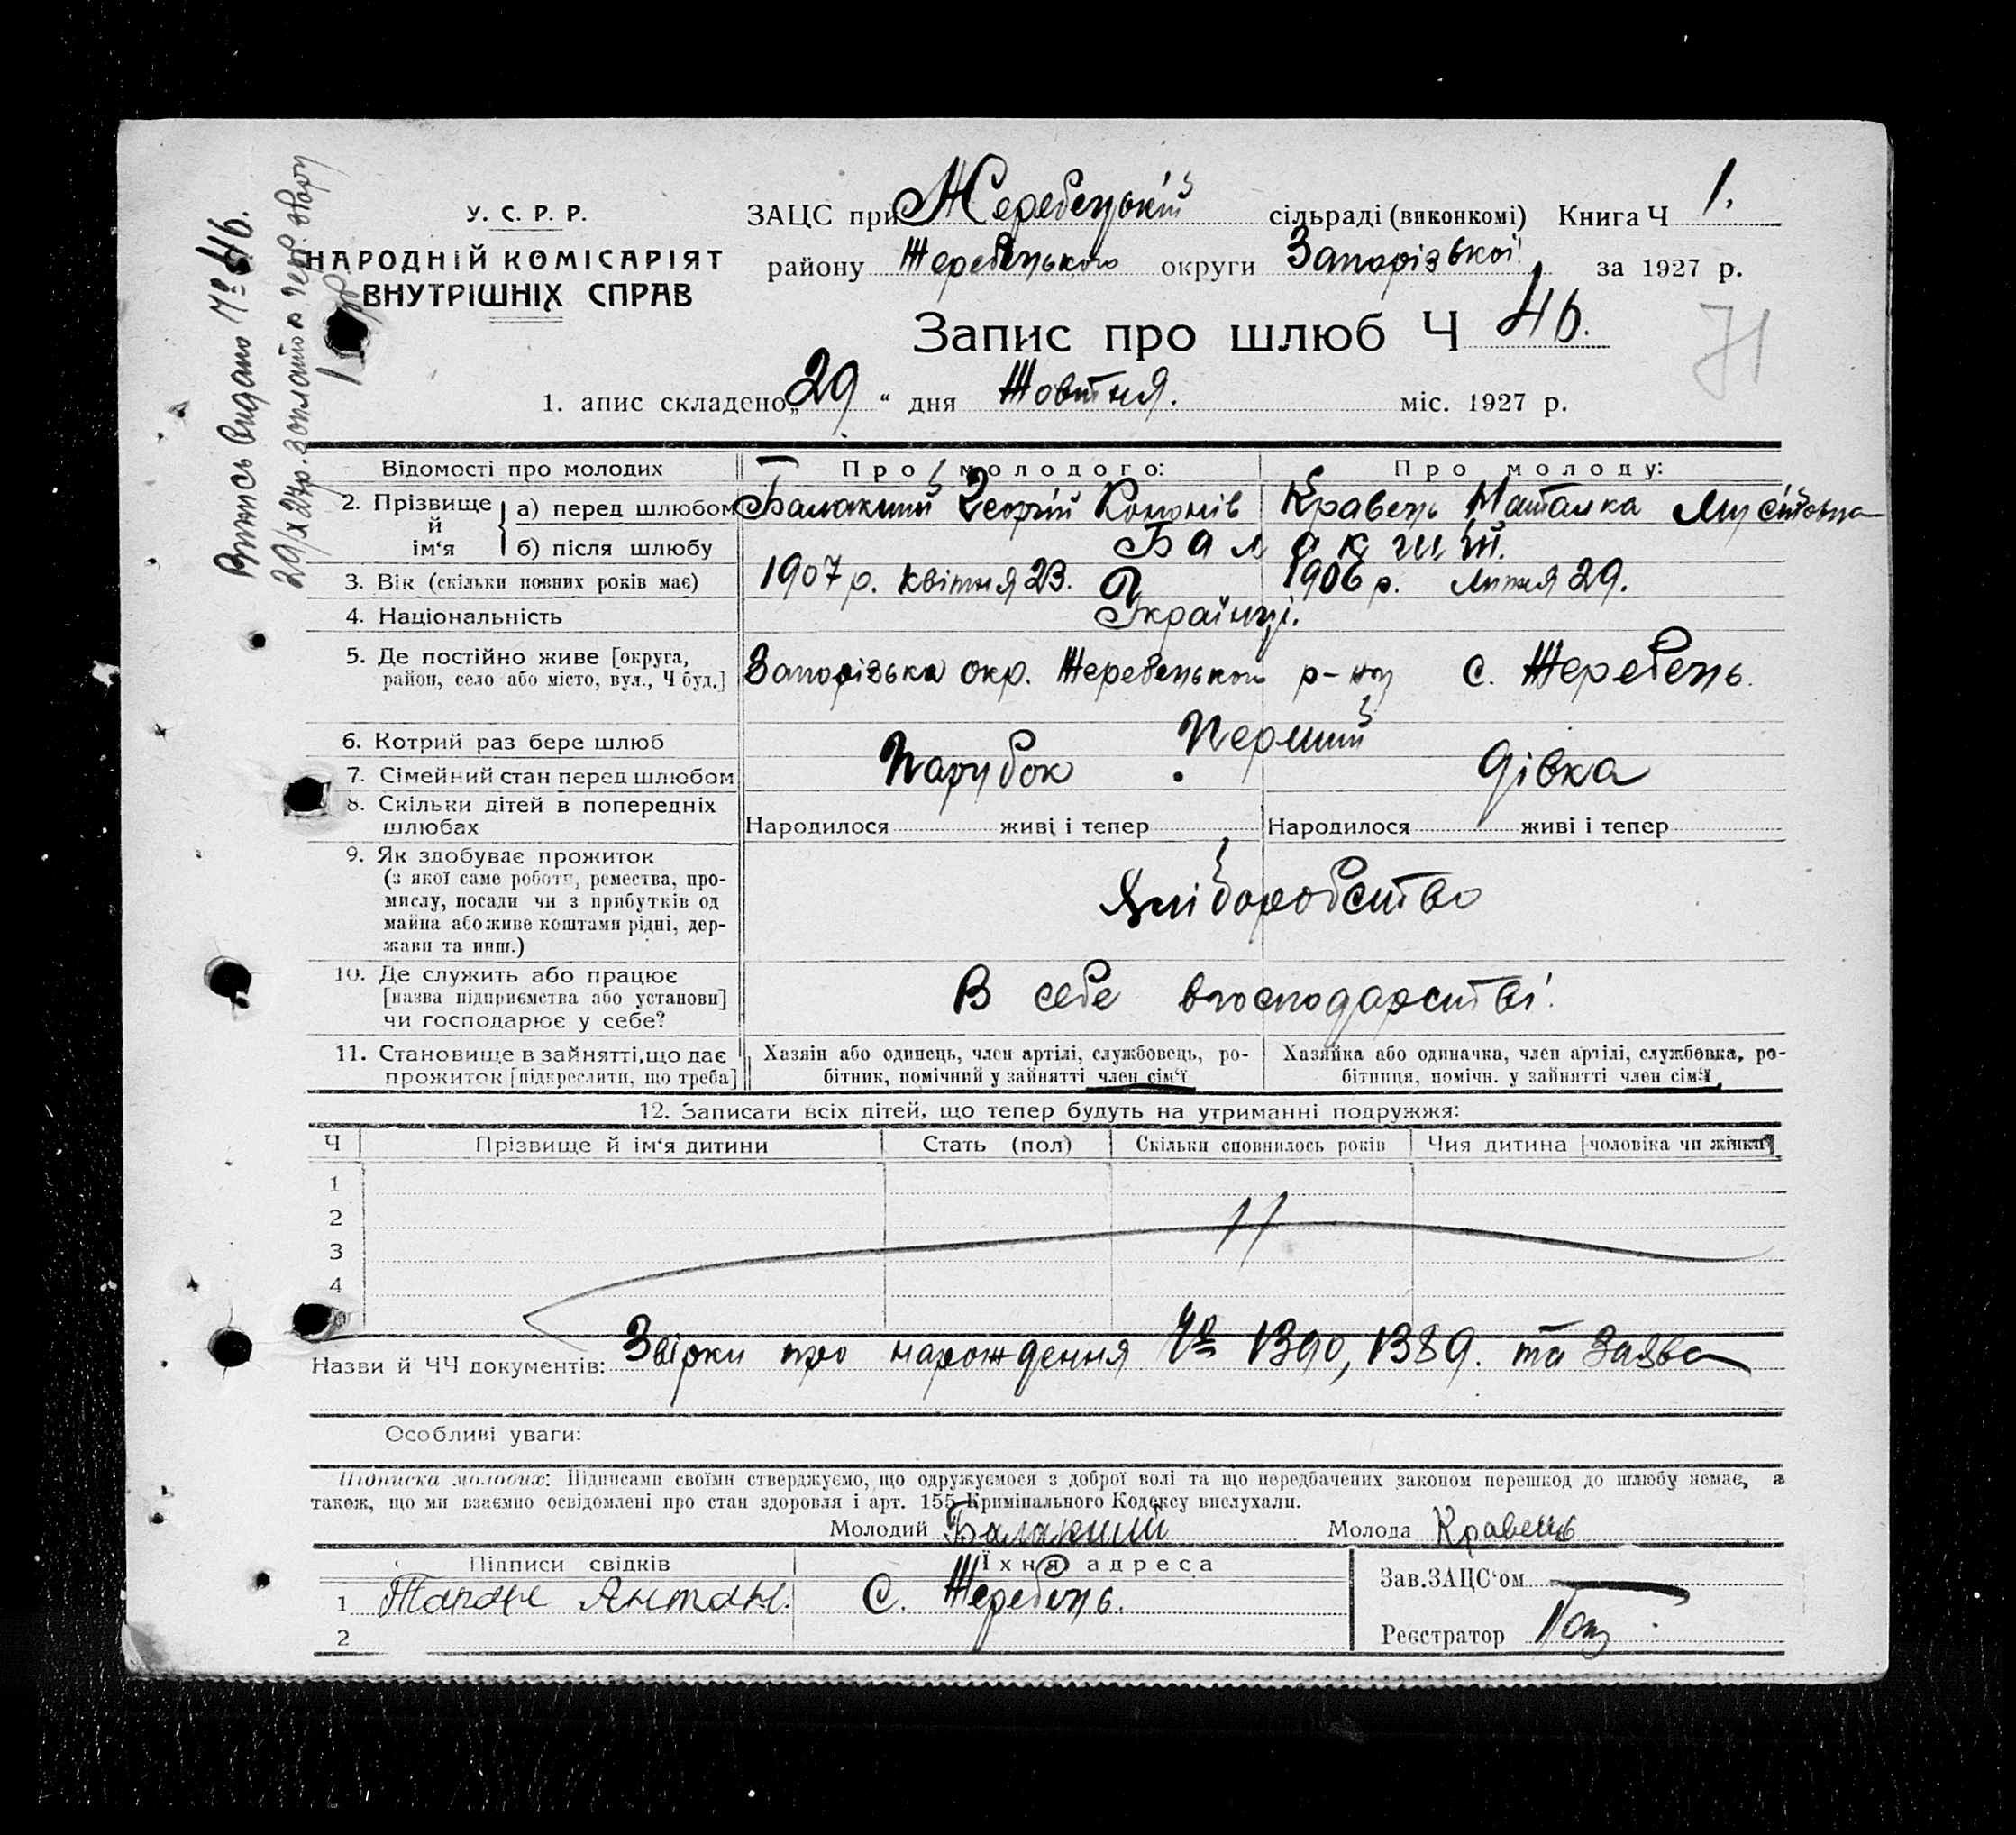 Випись видано № 46.
29/X 27р. заплатила герб. збору
1 рб
У. С. Р. Р.
НАРОДНІЙ КОМІСАРІЯТ
ВНУТРІШНІХ СПРАВ
ЗАЦС при Жеребецькій сільраді (виконкомі) Книга Ч 1.
району Жеребецького округи Запорізької за 1927 р.
Запис про шлюб Ч 46.
71
1. апис складено „29“ дня Жовтня. міс. 1927 р.
Відомості про молодих Про молодого: Про молоду:
2. Прізвище й ім‘я а) перед шлюбом Балакший Георгій Кононів Кравець Наталка Мусіївна
б) після шлюбу Балакший.
3. Вік (скільки повних років має) 1907 р. квітня 23. 1906 р. липня 29.
4. Національність Українці.
5. Де постійно живе [округа, район, село або місто, вул., Ч буд.] Запорізька окр. Жеребецького р-ну с. Жеребець.
6. Котрий раз бере шлюб Перший
7. Сімейний стан перед шлюбом Парубок Дівка
8. Скільки дітей в попередніх шлюбах Народилося живі і тепер Народилося живі і тепер
9. Як здобуває прожиток
(з якої саме роботи, ремества, про-
мислу, посади чи з прибутків од
майна або живе коштами рідні, дер-
жави та инш.) Хліборобство
10. Де служить або працює
[назва підприємства або установи]
чи господарює у себе? В себе в господарстві.
11. Становище в зайнятті, що дає
прожиток [підкреслити, що треба]
Хазяїн або одинець, член артілі, службовець, ро-
бітник, помічний у зайнятті член сім‘ї
Хазяйка або одиначка, член артілі, службовка, ро-
бітниця, помічн. у зайнятті член сім‘ї
12. Записати всіх дітей, що тепер будуть на утриманні подружжя:
Ч Прізвище й ім‘я дитини Стать (пол) Скільки сповнилось років Чия дитина [чоловіка чи жінки]
1
2
3
4
Назви й ЧЧ документів: Звірки про народження № 1390, 1389. та Заява
Особливі уваги:
Підписка молодих: Підписами своїми стверджуємо, що одружуємося з доброї волі та що передбачених законом перешкод до шлюбу немає, а
також, що ми взаємно освідомлені про стан здоровля і арт. 155 Кримінального Кодексу вислухали.
Молодий Балакший Молода Кравець
Підписи свідків Їхня адреса Зав.ЗАЦС‘ом
1 Антон. С. Жеребець.
2 Реєстратор